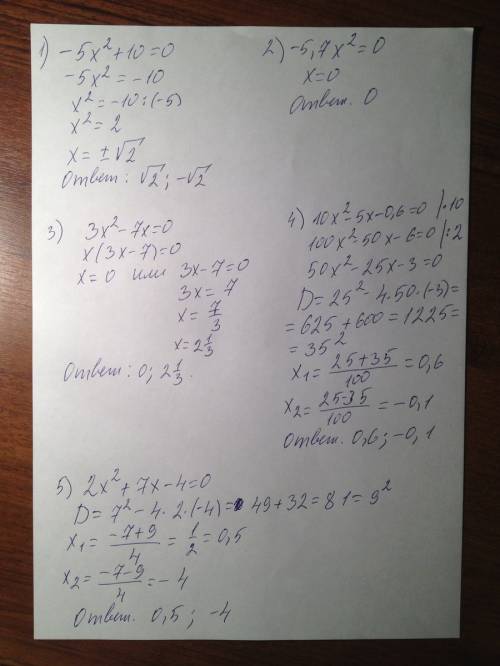 1) -5x² + 10 = 0
-5x² = -10
x² = -10 : (-5)
x² = 2
x = ±√2
Ответ: √2 ; -√2
2) -5,7x² = 0
x = 0
Ответ. 0
3) 3x² - 7x = 0
x(3x - 7) = 0
x = 0 или 3x - 7 = 0
3x = 7
x = 7/3
x = 2 1/3
Ответ: 0; 2 1/3.
4) 10x² - 5x - 0,6 = 0 |·10
100x² - 50x - 6 = 0 |:2
50x² - 25x - 3 = 0
D = 25² - 4·50·(-3) =
= 625 + 600 = 1225 =
= 35²
x₁ = (25+35)/100 = 0,6
x₂ = (25-35)/100 = -0,1
Ответ. 0,6 ; -0,1
5) 2x² + 7x - 4 = 0
D = 7² - 4·2·(-4) = 49 + 32 = 81 = 9²
x₁ = (-7+9)/4 = 1/2 = 0,5
x₂ = (-7-9)/4 = -4
Ответ. 0,5 ; -4